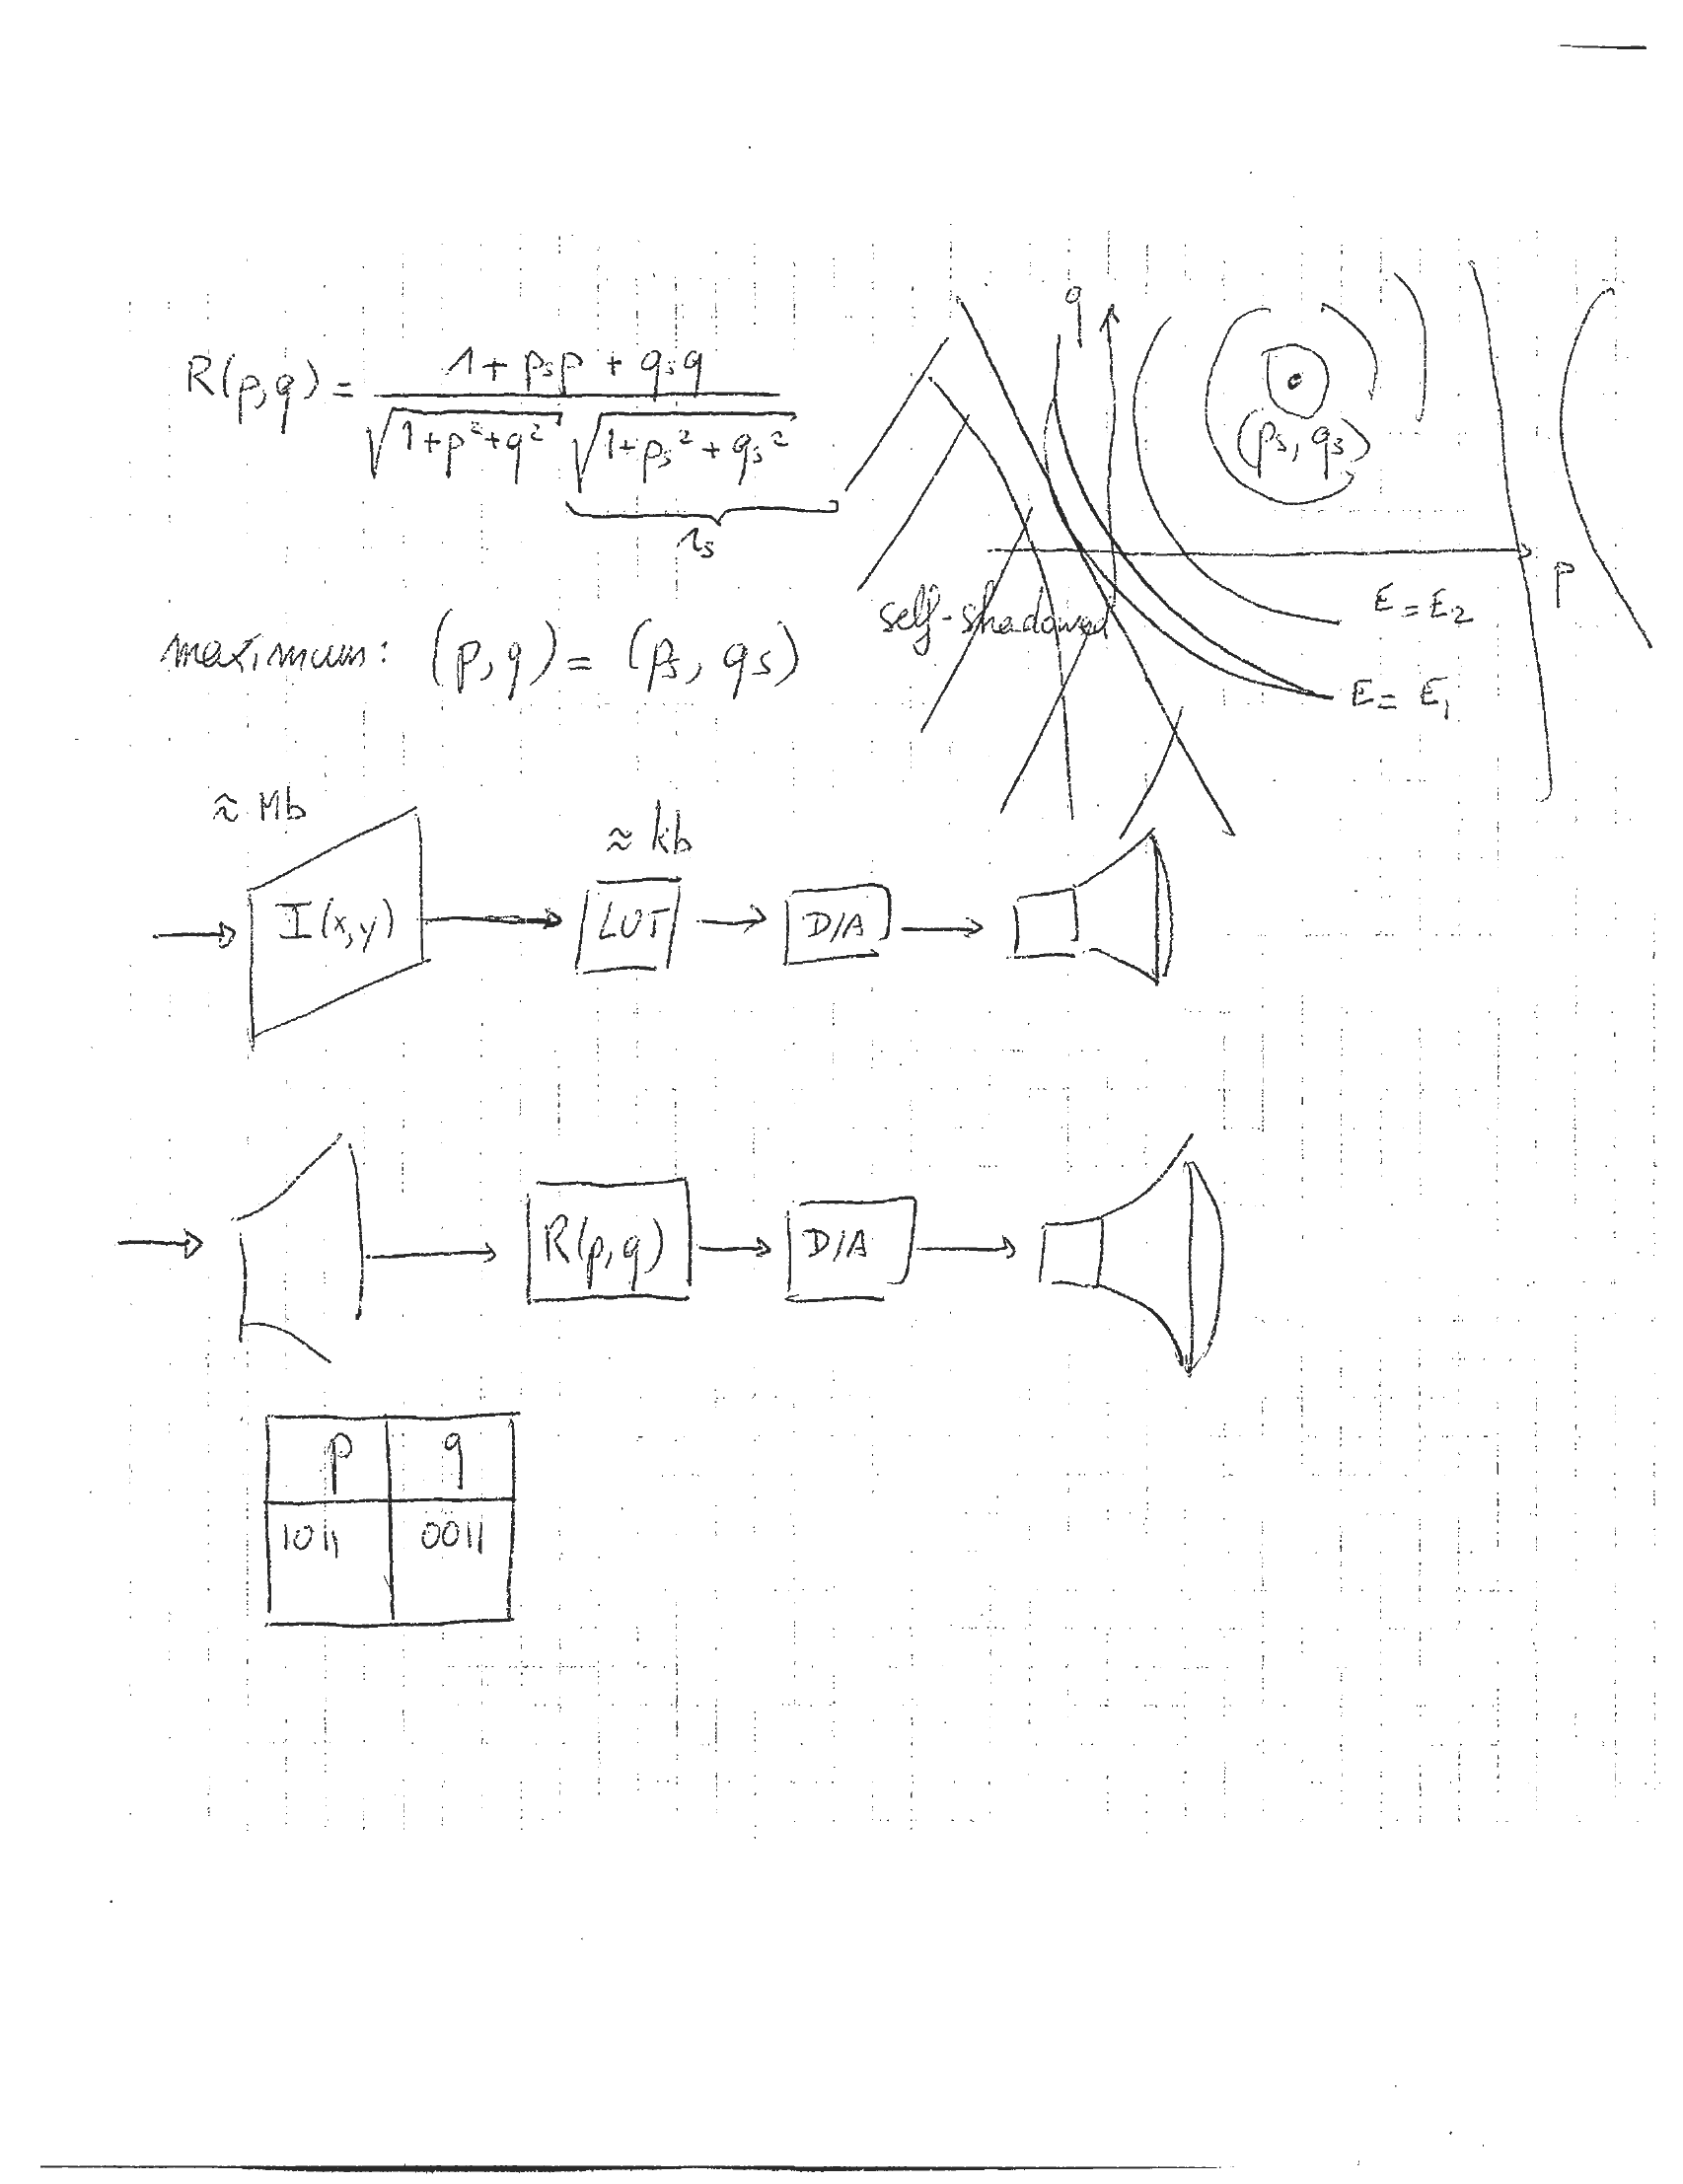 R(p,q) = (1 + p_s p + q_s q) / (√(1+p²+q²) √(1+p_s²+q_s²))
r_s
maximum: (p,q) = (p_s, q_s)
q
(p_s, q_s)
p
self-shadowed
E = E₂
E = E₁
≈ Mb
≈ kb
I(x,y)
LUT
D/A
R(p,q)
D/A
p q
1011 0011